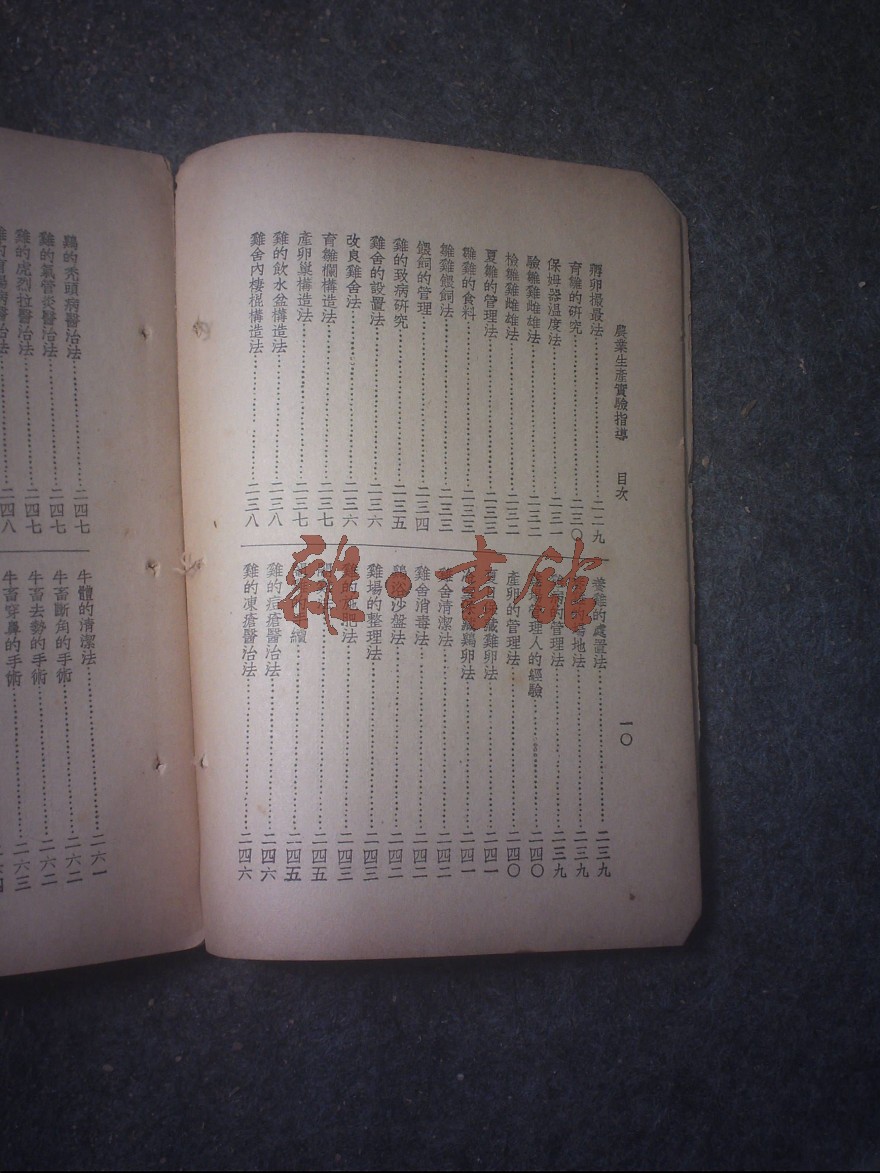 農業生產實驗指導 目次 一〇
孵卵撮最法……二二九
育雛的硏究……二三〇
保姆器溫度法……二三一
驗雛雞雌雄法……二三二
檢雛雞雌雄法……二三二
夏雛的管理法……二三三
雛雞的食料……二三三
雛雞餵飼法……二三三
餵飼的管理……二三四
雞的致病硏究……二三五
雞舍的設置法……二三六
改良雞舍法……二三六
育雛欄構造法……二三七
產卵巢構造法……二三七
雞的飲水盆構造法……二三八
雞舍內棲棍構造法……二三八
養雞的處置法……二三九
場地法……二三九
管理法……二三九
理人的經驗……二四〇
產卵的管理法……二四〇
藏雞卵法……二四一
藏鷄卵法……二四一
雞舍清潔法……二四二
雞舍消毒法……二四二
鷄浴沙盤法……二四二
雞場的整理法……二四三
雞的肥法……二四三
……二四五
續……二四五
雞的痘瘡醫治法……二四六
雞的凍瘡醫治法……二四六
鷄的禿頭病醫治法……二四七
雞的氣管炎醫治法……二四七
雞的虎烈拉醫治法……二四七
病醫治法……二四八
牛體的清潔法……二六一
牛畜斷角的手術……二六二
牛畜去勢的手術……二六三
牛畜穿鼻的手術
雜·書館